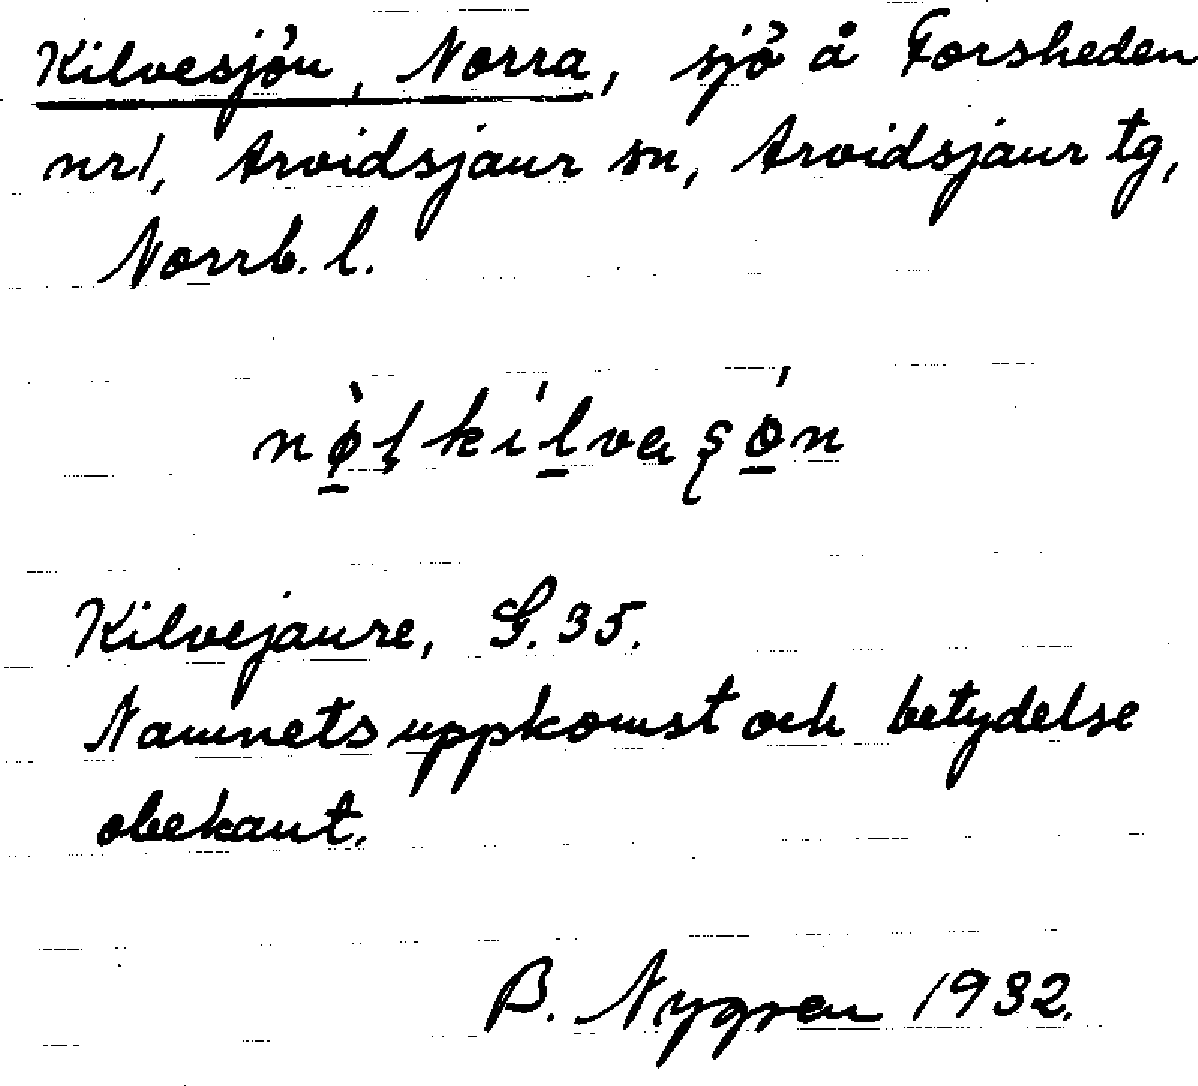 Kilvesjön, Norra, sjö å Forsheden
nr1, Arvidsjaur sn, Arvidsjaur tg,
Norrb. l.
Kilvejaure, G. 35.
Namnets uppkomst och betydelse
obekant.
B. Nygren 1932.